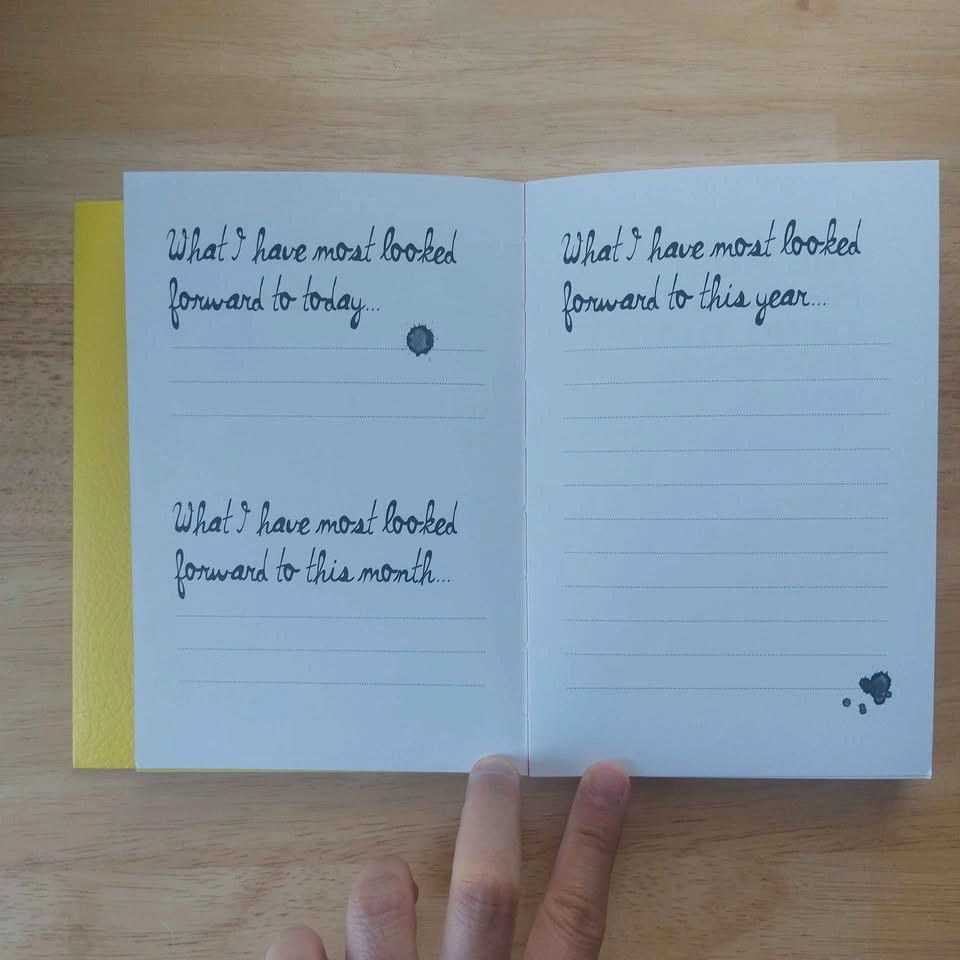 What I have most looked
forward to today...
What I have most looked
forward to this month...
What I have most looked
forward to this year...